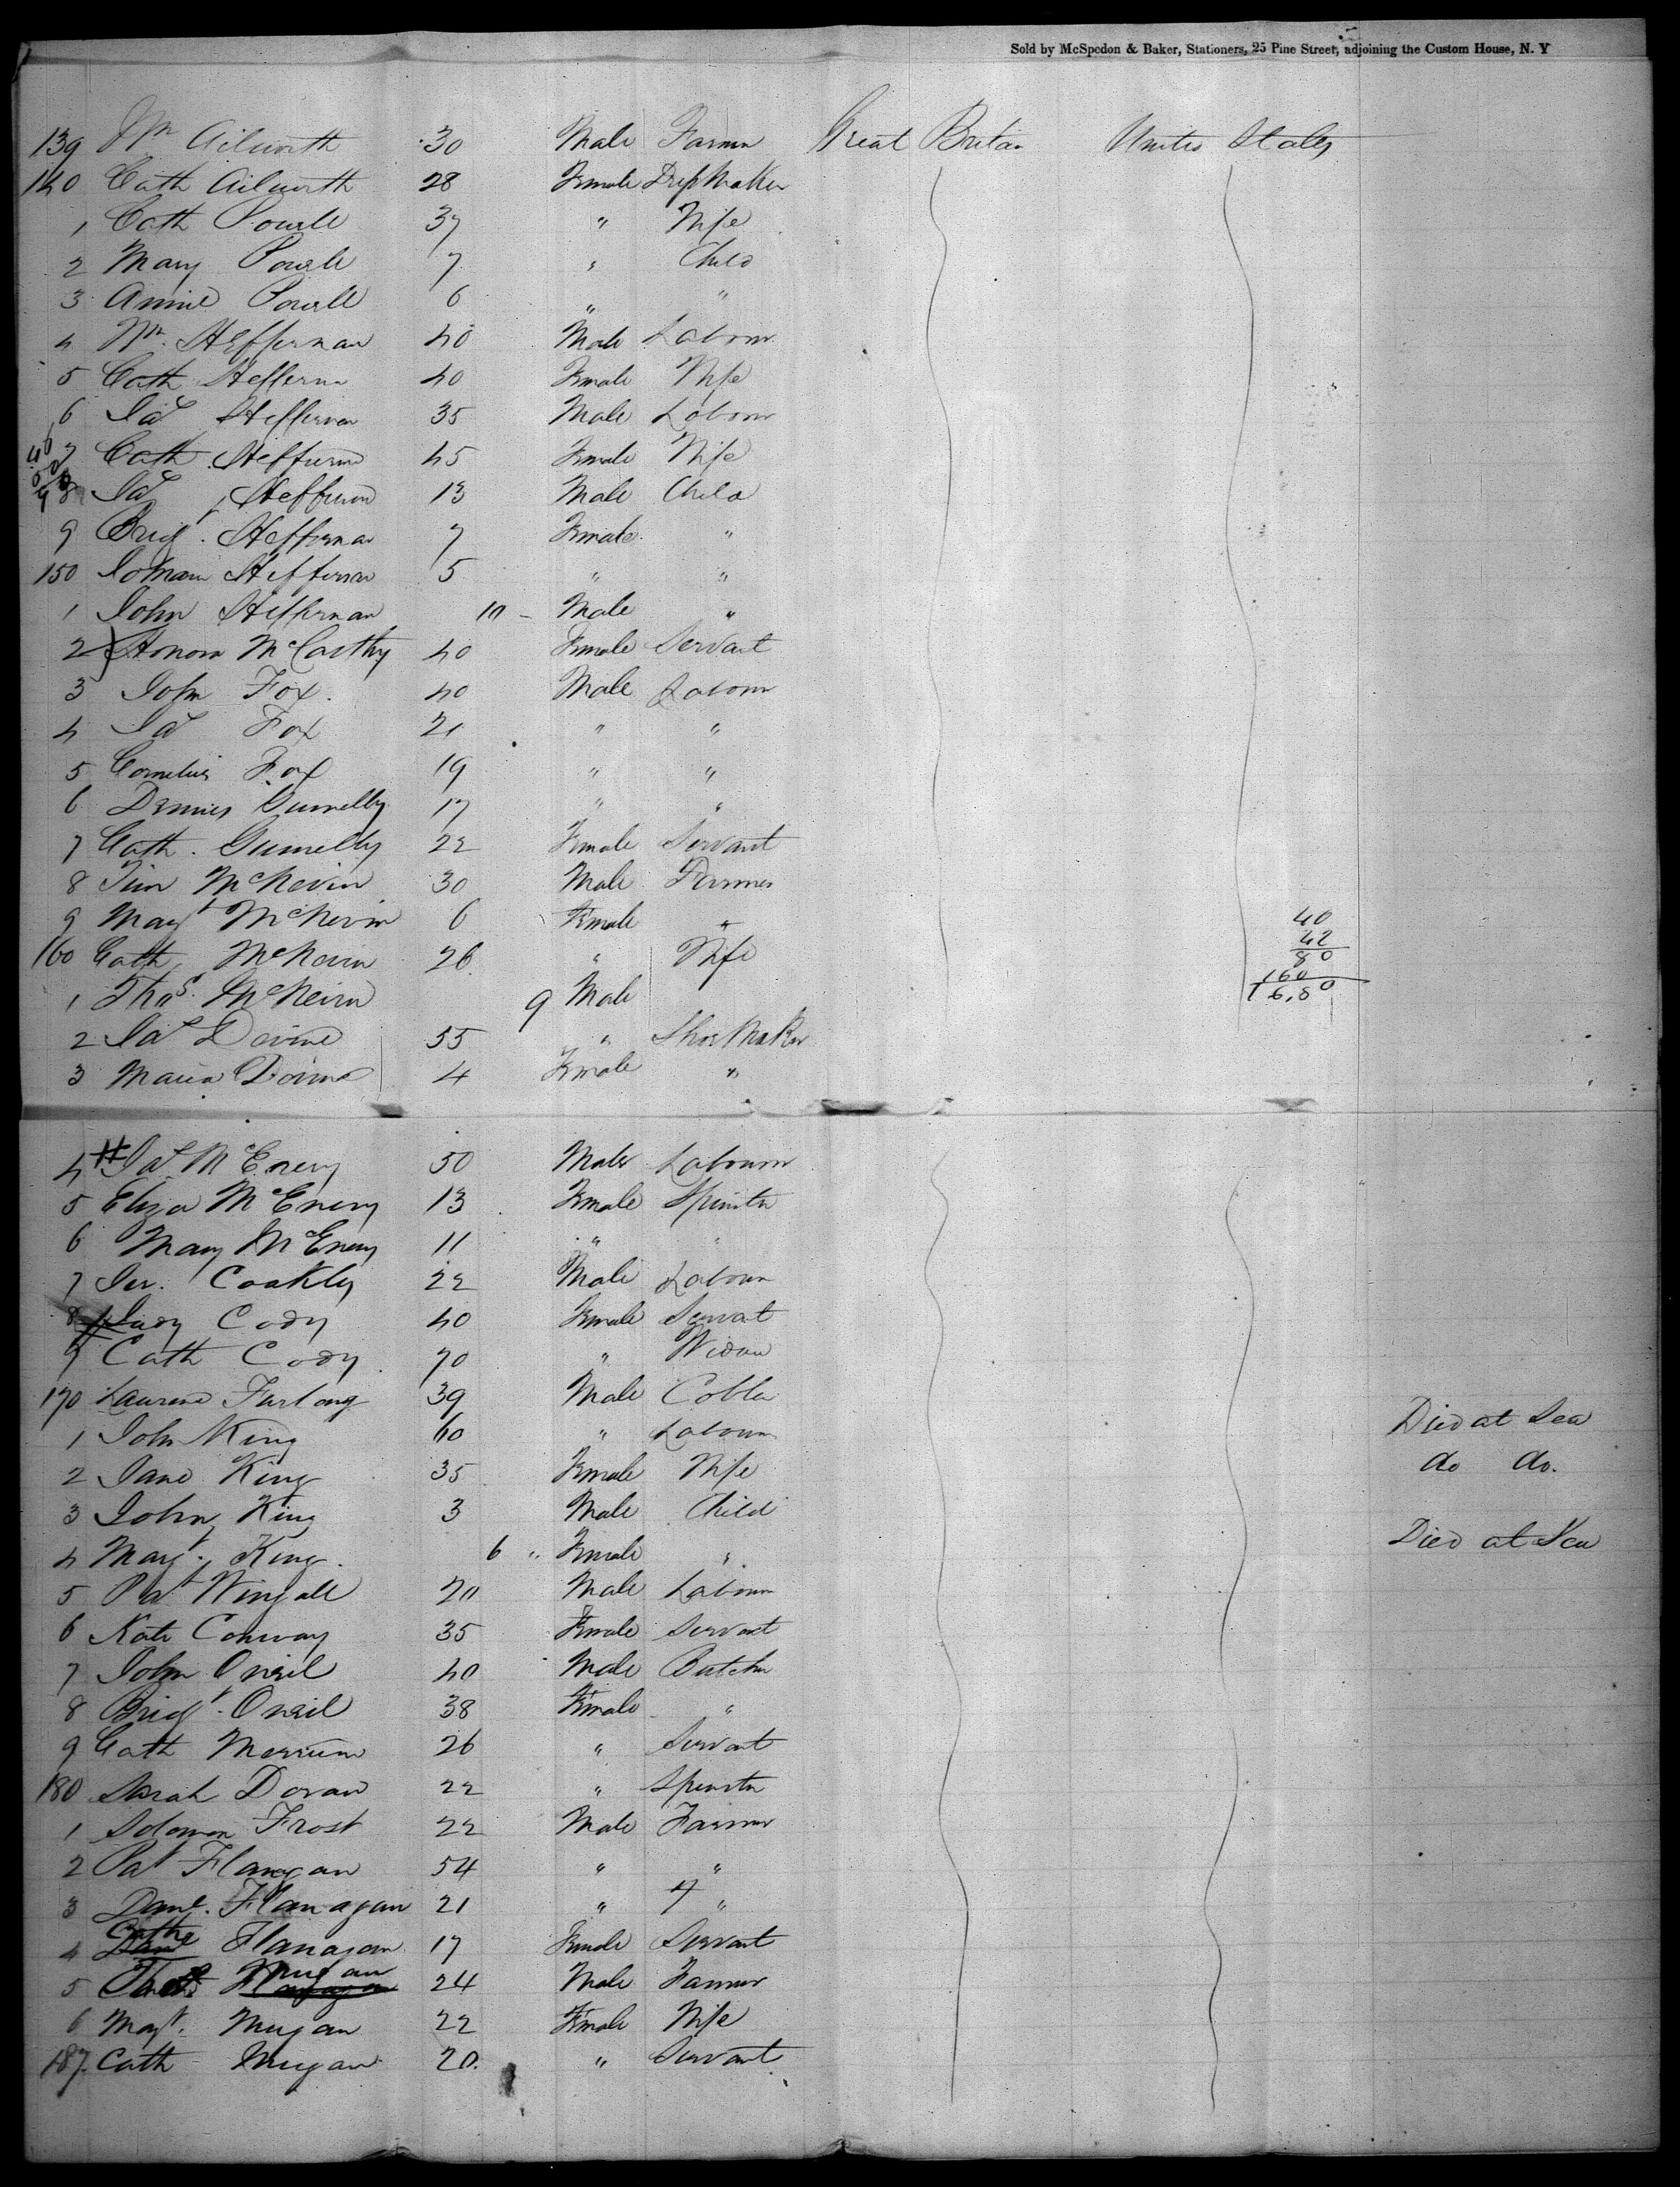 Sold by McSpedon & Baker, Stationers, 25 Pine Street, adjoining the Custom House, N. Y
139 Wm Ailworth 30 Male Farmer Great Britain United States
140 Cath Ailworth 28 Female Dress Maker
1 Cath Powell 37 " Wife
2 Mary Powell 7 " Child
3 Annie Powell 6 " "
4 Wm. Heffernan 40 Male Labour
5 Cath Heffernan 40 Female Wife
6 Jas Heffernan 35 Male Labour
7 Cath Heffernan 45 Female Wife
8 Jas Heffernan 13 Male Child
9 Brigt. Heffernan 7 Female "
150 Johana Heffernan 5 " "
1 John Heffernan 10 - Male "
2 Honora McCarthy 40 Female Servant
3 John Fox. 40 Male Labour
4 Jas Fox 21 " "
5 Cornelius Fox 19 " "
6 Dennis Gumelly 17 " "
7 Cath. Gumelly 22 Female Servant
8 Tim McNevin 30 Male Farmer
9 Magt McNevin 6 Female "
160 Cath McNevin 26 " Wife
1 Thos. McNevin 9 Male
40
42
80
160
16,80
2 Jas Devine 55 " Shoe Maker
3 Maria Devine 4 Female "
4 Jas McEnery 50 Male Labourer
5 Eliza McEnery 13 Female Spinster
6 Mary McEnery 11 " "
7 Jer. Coakley 22 Male Labour
8 Judy Cody 40 Female Servant
9 Cath Cody 70 " Widow
170 Laurence Furlong 39 Male Cobler
1 John King 60 " Labour Died at Sea
2 Jane King 35 Female Wife do do.
3 John King 3 Male Child
4 Magt. King. 6 " Female " Died at Sea
5 Pat Wingall 20 Male Labour
6 Kate Conway 35 Female Servant
7 John Oneil 40 Male Butcher
8 Brigt. Oneil 38 Female "
9 Cath 26 " Servant
180 Sarah Doran 22 " Spinster
1 Solomon Frost 22 Male Farmer
2 Pat Flanagan 54 " "
3 Danl. Flanagan 21 " "
4 Cathe Flanagan 17 Female Servant
5 Thos Mugan 24 Male Farmer
6 Magt. Mugan 22 Female Wife
187. Cath Mugan 20. " Servant